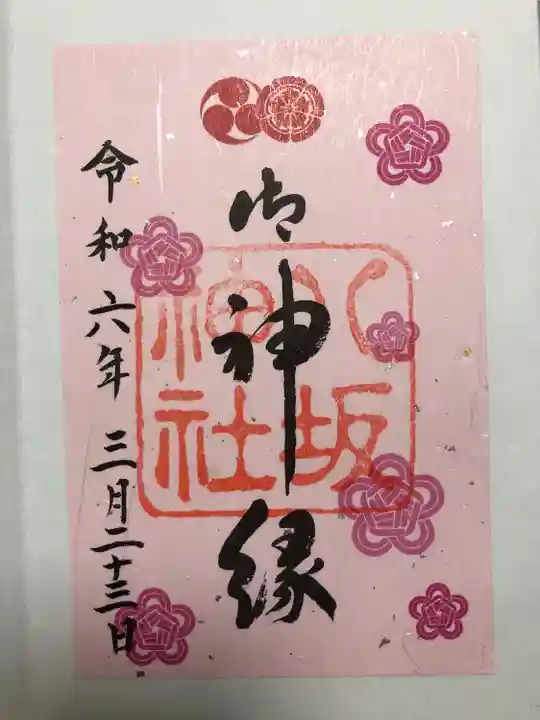 御神縁
八坂神社
令和六年三月二十三日